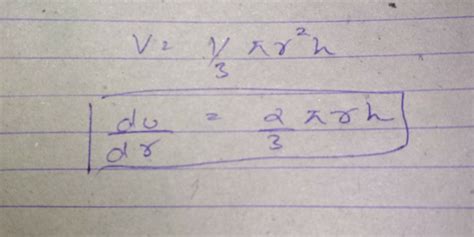 V = 1/3 πr²h
dv/dr = 2/3 πrh